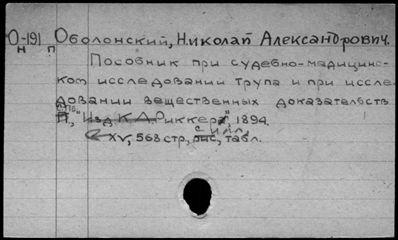 О-191 Оболонский, Николай Александрович.
н п
Пособник при судебно-медицинс-
ком исследовании трупа и при иссле
довании вещественных доказательств.
СПб.
П., "Изд. К.Л. Риккера", 1894.
с илл.
XV, 568 стр, рис, табл.